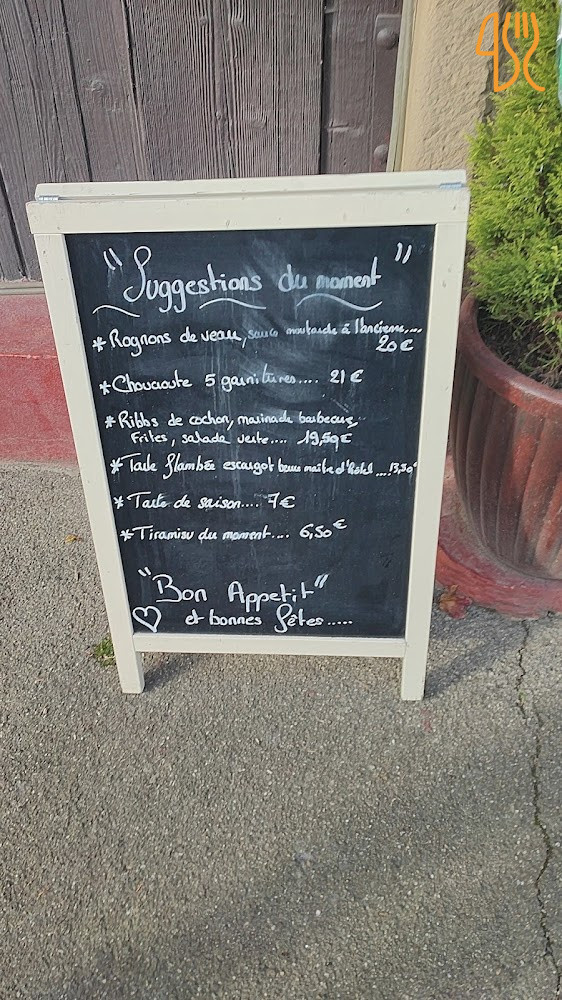 "Suggestions du moment"
* Rognons de veau, sauce moutarde à l'ancienne....
20€
* Choucroute 5 garnitures.... 21€
* Ribbs de cochon, marinade barbecue
Frites, salade verte.... 19,50€
* Tarte flambée escargot beurre maître d'hôtel ....13,50€
* Tarte de saison.... 7€
* Tiramisu du moment.... 6,50€
"Bon Appetit"
et bonnes fêtes.....